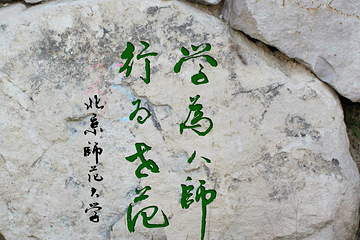 学为人师
行为世范
北京师范大学